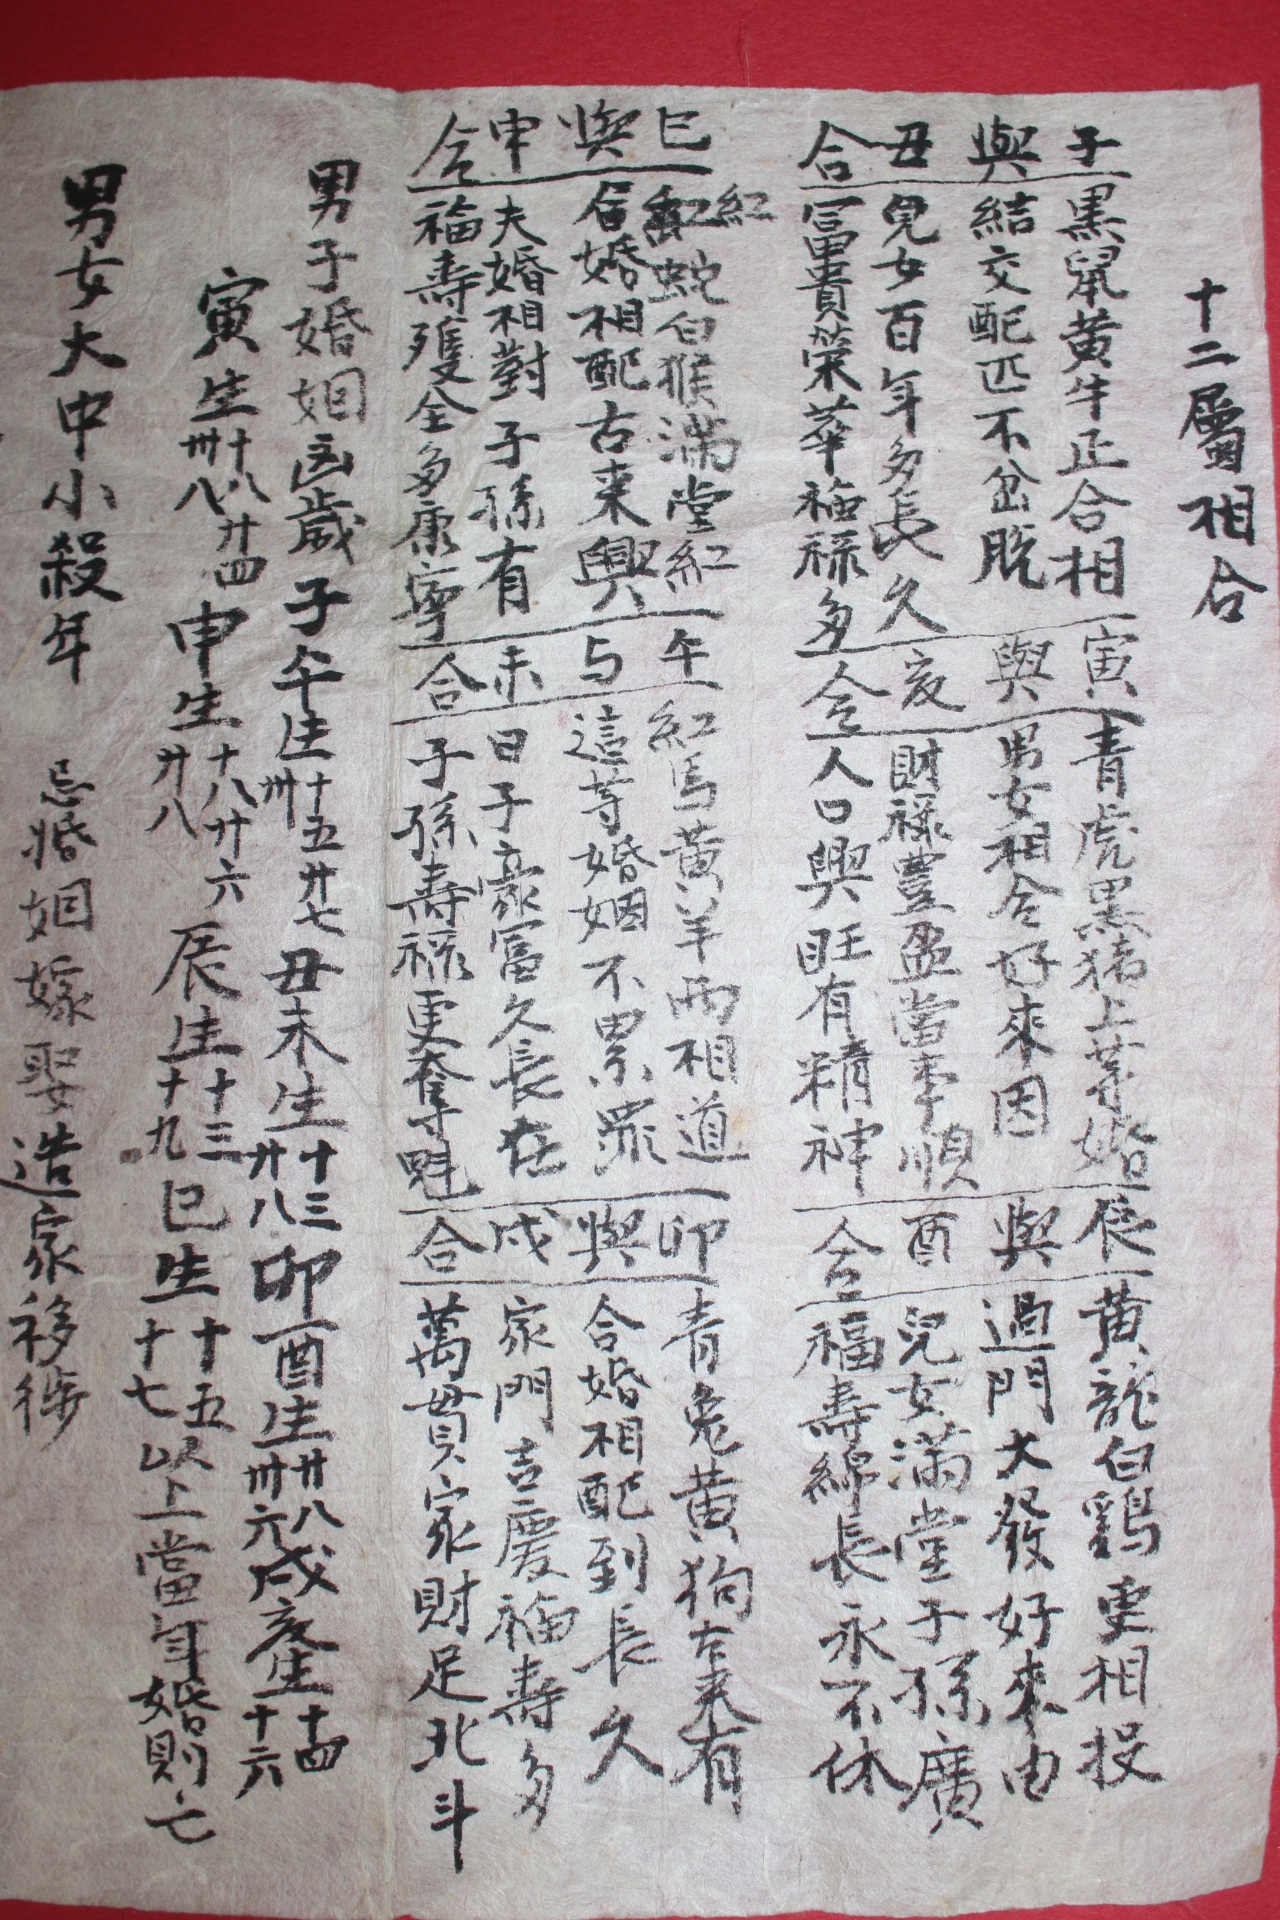 十二屬相合
子與丑合
黑鼠黃牛正合相
結交配匹不岔脫
兒女百年多長久
冨貴榮華福祿多
寅與亥合
青虎黑猪上等婚
男女相合好來因
財祿豊盈當事順
人口興旺有精神
辰與酉合
黃龍白雞更相投
過門大發好來由
兒女滿堂子孫廣
福壽綿長永不休
巳與申合
紅蛇白猴滿堂紅
合婚相配古来興
夫婚相對子孫有
福壽雙全多康寧
午与未合
紅馬黃羊兩相道
這等婚姻不累罪
日子豪冨久長在
子孫壽祿更奪魁
卯與戌合
青兔黃狗古来有
合婚相配到長久
家門吉慶福壽多
萬貫家財足北斗
男子婚姻凶歲子午生十五廿七卅丑未生十三廿八卯酉生廿八卅六戌亥生十四十六
寅生十八廿四卅八申生十八廿六廿八辰生十三十九巳生十五十七以上當年婚則亡
男女大中小殺年 忌婚姻嫁娶造家移徙